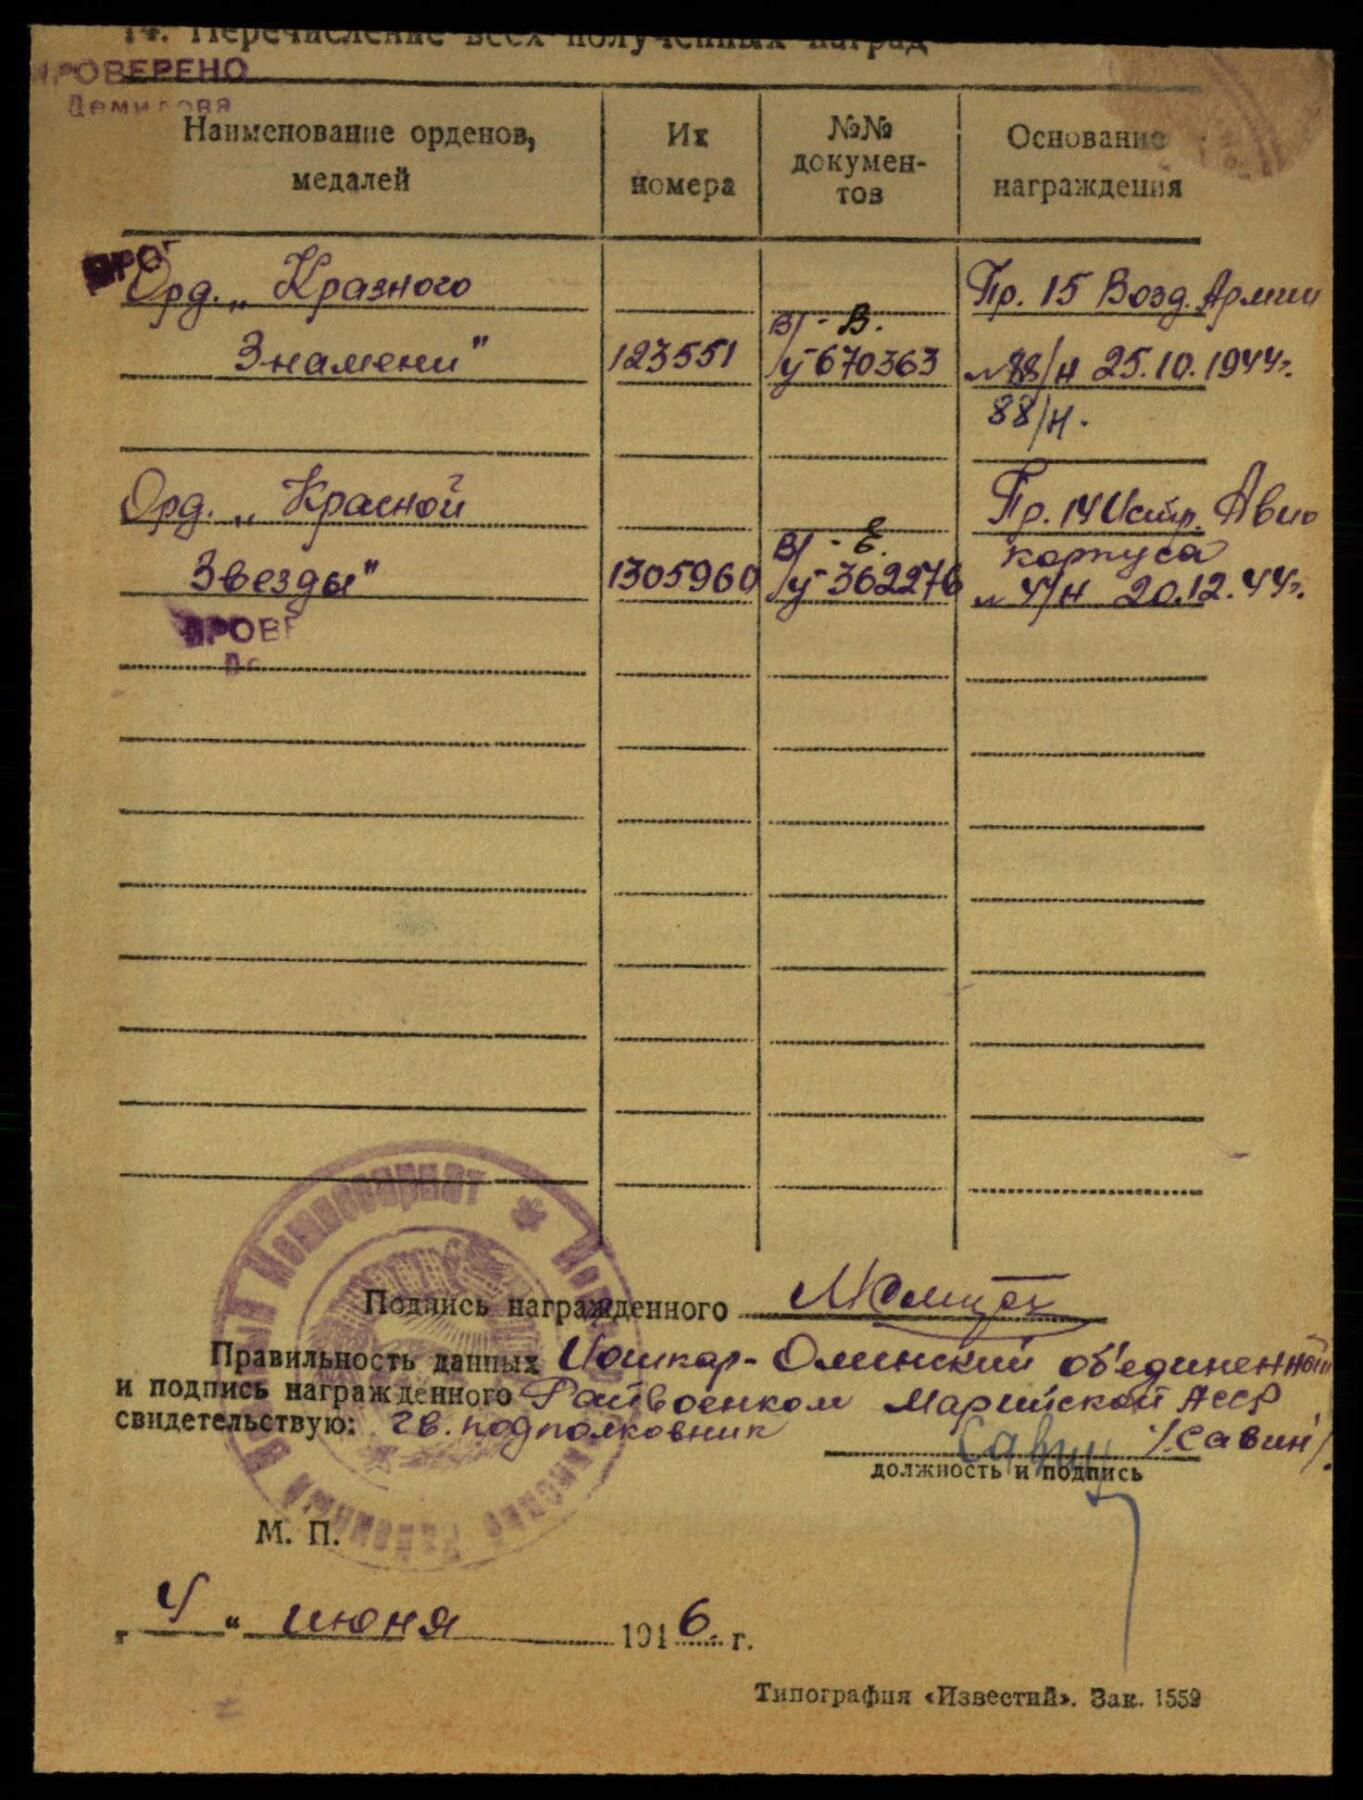 14. Перечисление всех полученных наград
ПРОВЕРЕНО
Демидова
Наименование орденов, медалей
Их номера
№№ документов
Основание награждения
Орд. „Красного
Пр. 15 Возд. Армии
В/ - В.
Знамени" 123551 /у-670363 № 88/н 25.10.1944г.
88/н.
Орд. „Красной
Пр. 14 Истр. Авио
В/ - Е. корпуса
Звезды" 1305960 /у-362276 № 4/н 20.12.44г.
Подпись награжденного
Правильность данных Йошкар-Олинский об'единенный
и подпись награжденного Райвоенком Марийской АССР
свидетельствую: гв. подполковник /Савин/.
должность и подпись
М. П.
„ 4 " июня 1946 г.
Типография «Известий». Зак. 1559